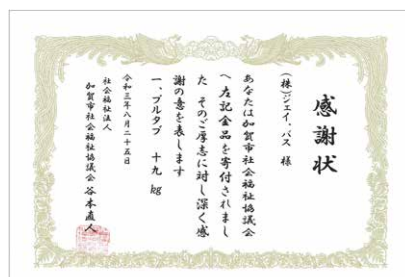 感謝状
(株)ジェイ、バス 様
あなたは加賀市社会福祉協議会
へ左記金品を寄付されまし
た そのご厚志に対し深く感
謝の意を表します
一、プルタブ 十九 kg
令和三年八月二十五日
社会福祉法人
加賀市社会福祉協議会 谷本直人